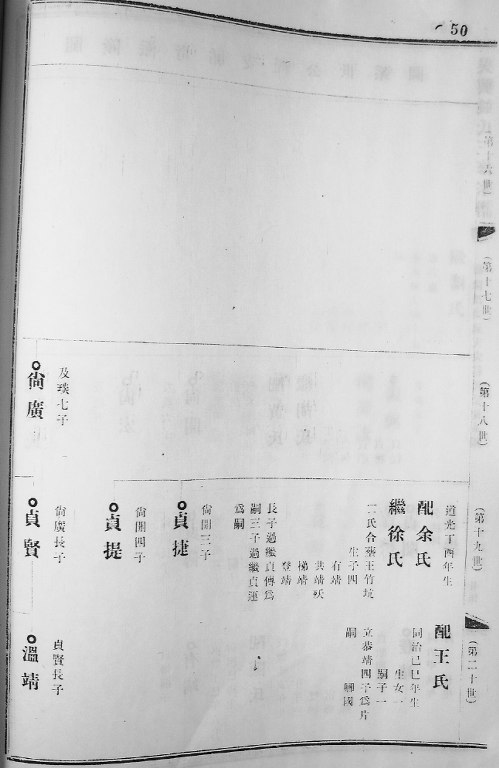 50
(第十六世)
(第十七世)
(第十八世)
(第十九世)
(第二十世)
道光丁酉年生
配余氏
繼徐氏
二氏合塟王竹坑
生子四
有靖
共靖殀
梯靖
登靖
長子過繼貞傅爲
嗣三子過繼貞運
爲嗣
配王氏
同治己巳年生
生女一
嗣子一
立恭靖四子爲片
嗣
貞捷
尙開三子
貞提
尙開四子
尙廣
及璞七子
貞賢
尙廣長子
溫靖
貞賢長子